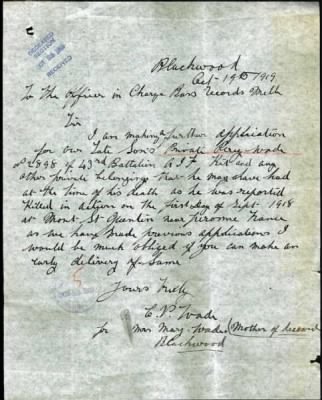 RECEIVED
Blackwood
Oct 19th 1919
To The Officer in Charge Base Records Melb
Sir
I am making further application
for our late Son's Private Percy Wade
No 2898 of 43rd Battalion A.I.F Kit and any
other private belongings that he may have had
at the time of his death as he was reported
Killed in action on the first Day of Sept 1918
at Mont St Quentin near Peronne France
as we have made previous applications I
would be much obliged if you can make an
early delivery of same
Yours truly
C. P. Wade
for Mrs Mary Wade (Mother of deceased
Blackwood